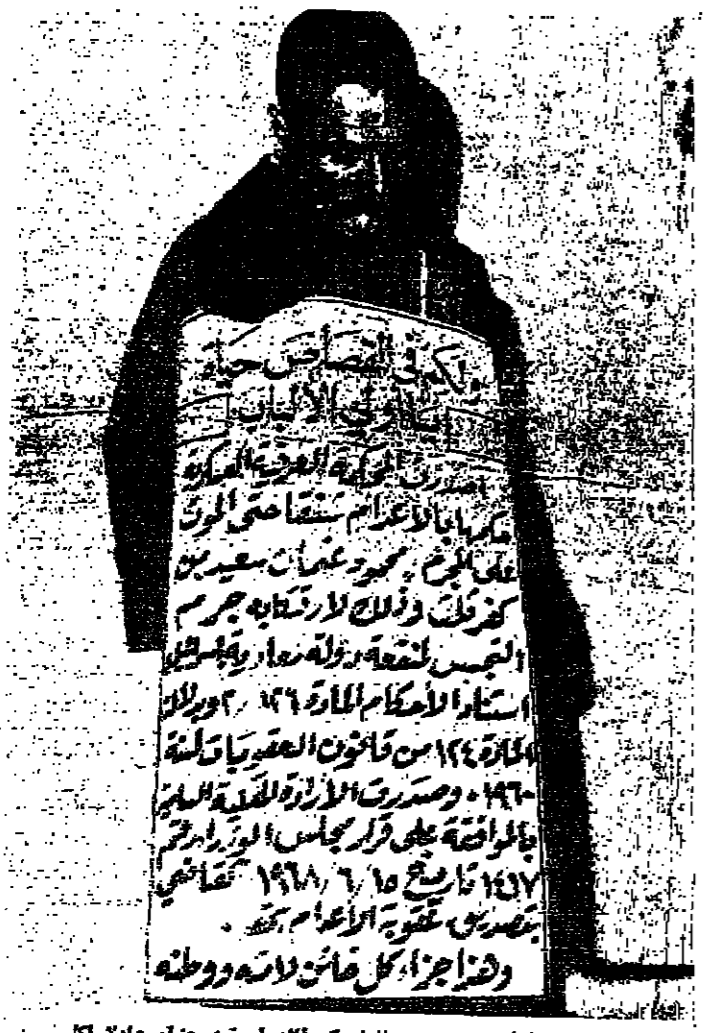 ولكم في القصاص حياة
يا أولي الألباب
اصدرت المحكمة العرفية العسكرية
حكمها بالاعدام شنقا حتى الموت
على المجرم محمود عثمان سعيد من
كفر قلت وذلك لارتكابه جرم
التجسس لمنفعة دولة معادية
استنادا لأحكام المادة ١٢٦ /٢ وبدلالة
المادة ١٢٤ من قانون العقوبات لسنة
١٩٦٠ وصدرت الأرادة الملكية السامية
بالموافقة على قرار مجلس الوزراء رقم
تاريخ ١٥/٦/١٩٦٨ القاضي
بتصديق عقوبة الأعدام
وهذا جزاء كل خائن لامته ووطنه